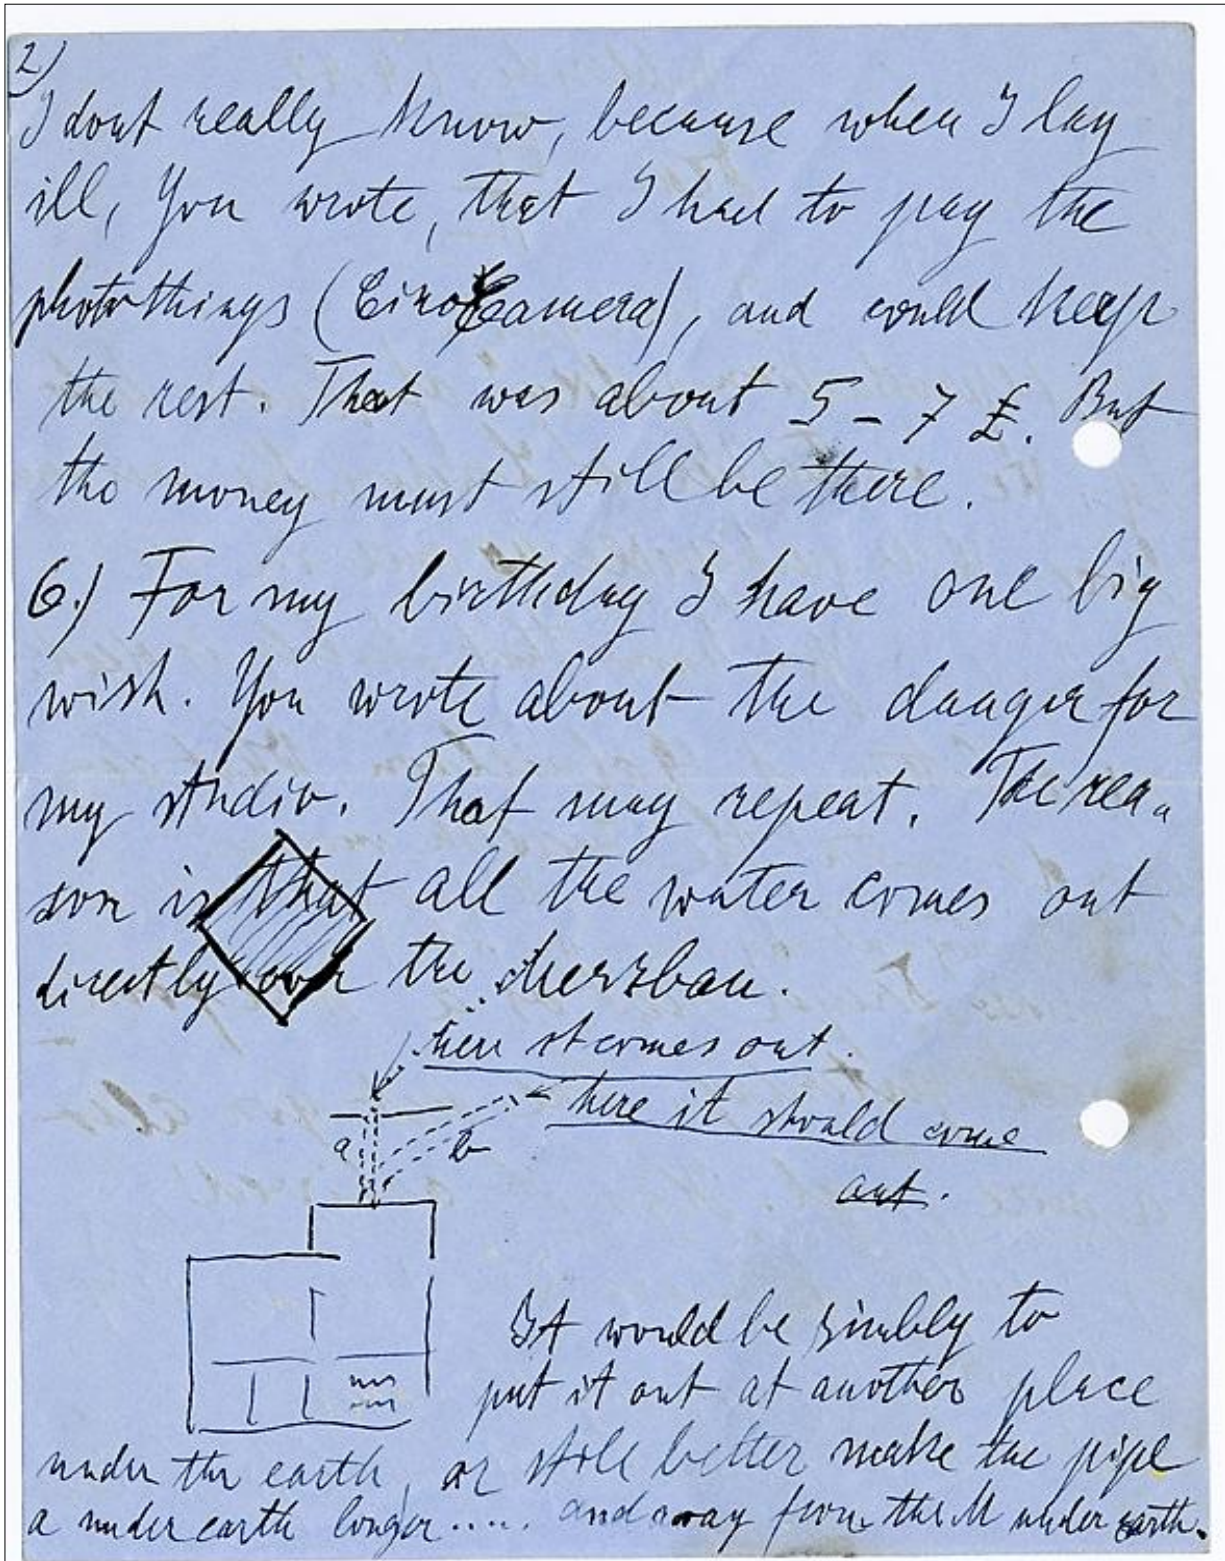 2)
I dont really know, because when I lay
ill, You wrote, that I had to pay the
photothings (Cinocamera), and could keep
the rest. That was about 5 - 7 £. But
the money must still be there.
6.) For my birthday I have one big
wish. You wrote about the danger for
my studio. That may repeat. The rea-
son is that all the water comes out
directly over the Merzbau.
here it comes out.
here it should come
out.
a
b
It would be simbly to
put it out at another place
under the earth, or still better make the pipe
a under earth longer..... and away from the M under earth.